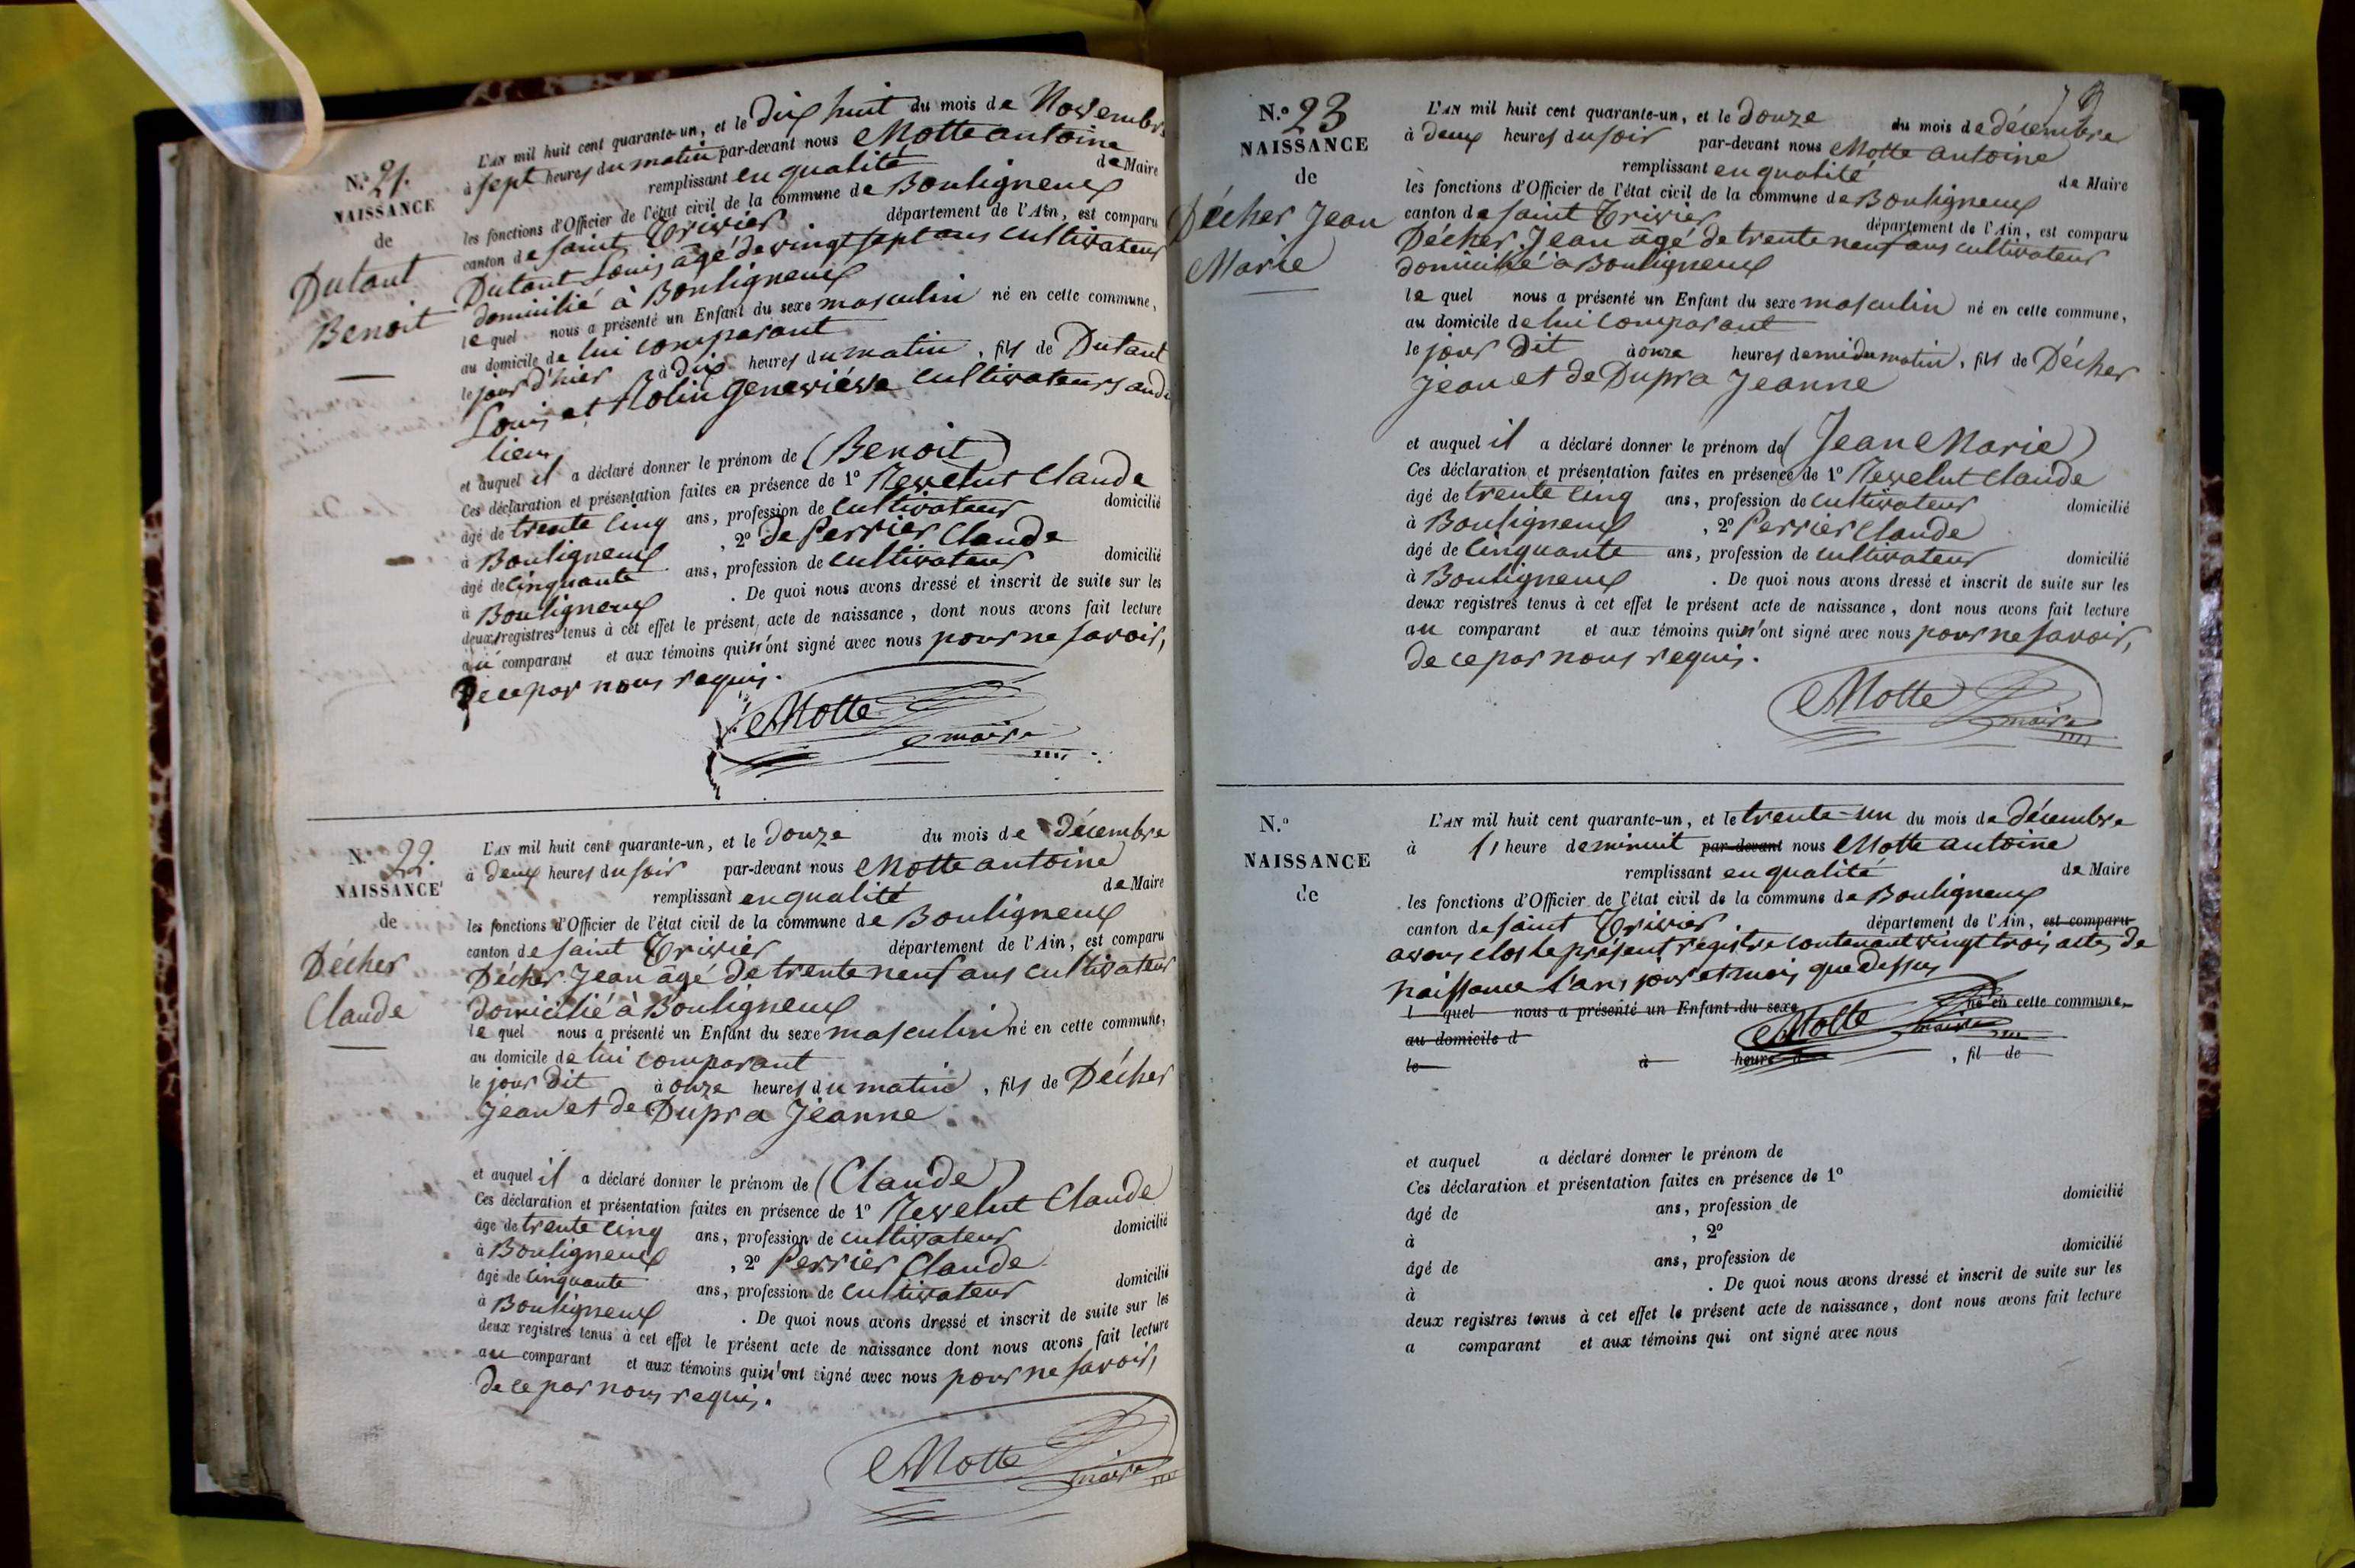 N.° 21.
NAISSANCE
de
Dutant
Benoit
L'AN mil huit cent quarante-un, et le dix huit du mois de Novembre
à sept heures du matin par-devant nous Motte antoine
remplissant en qualité de Maire
les fonctions d'Officier de l'état civil de la commune de Bouligneux
canton de saint Trivier département de l'Ain, est comparu
Dutant Louis âgé de vingt sept ans cultivateur
domicilié à Bouligneux
le quel nous a présenté un Enfant du sexe masculin né en cette commune,
au domicile de lui comparant
le jour d'hier à dix heures du matin, fils de Dutant
Louis et Molin geneviéve cultivateurs audit
lieu
et auquel il a déclaré donner le prénom de (Benoit)
Ces déclaration et présentation faites en présence de 1° Nevelut Claude
âgé de trente cinq ans, profession de cultivateur domicilié
à Bouligneux, 2° de Perrier Claude
âgé de cinquante ans, profession de cultivateur domicilié
à Bouligneux. De quoi nous avons dressé et inscrit de suite sur les
deux registres tenus à cet effet le présent acte de naissance, dont nous avons fait lecture
au comparant et aux témoins qui n'ont signé avec nous pour ne savoir,
de ce par nous requis.
Motte
maire
N.° 22.
NAISSANCE
de
Décher
Claude
L'AN mil huit cent quarante-un, et le douze du mois de décembre
à deux heures du soir par-devant nous Motte antoine
remplissant en qualité de Maire
les fonctions d'Officier de l'état civil de la commune de Bouligneux
canton de saint Trivier département de l'Ain, est comparu
Décher Jean âgé de trente neuf ans cultivateur
domicilié à Bouligneux
le quel nous a présenté un Enfant du sexe masculin né en cette commune,
au domicile de lui comparant
le jour dit à onze heures du matin, fils de Décher
Jean et de Dupra Jeanne
et auquel il a déclaré donner le prénom de (Claude)
Ces déclaration et présentation faites en présence de 1° Nevelut Claude
âgé de trente cinq ans, profession de cultivateur domicilié
à Bouligneux, 2° Perrier Claude
âgé de cinquante ans, profession de cultivateur domicilié
à Bouligneux. De quoi nous avons dressé et inscrit de suite sur les
deux registres tenus à cet effet le présent acte de naissance dont nous avons fait lecture
au comparant et aux témoins qui n'ont signé avec nous pour ne savoir,
de ce par nous requis.
Motte
maire
N.° 23
NAISSANCE
de
Décher Jean
Marie
L'AN mil huit cent quarante-un, et le douze du mois de décembre
à deux heures du soir par-devant nous Motte antoine
remplissant en qualité de Maire
les fonctions d'Officier de l'état civil de la commune de Bouligneux
canton de saint Trivier département de l'Ain, est comparu
Décher Jean âgé de trente neuf ans cultivateur
domicilié à Bouligneux
le quel nous a présenté un Enfant du sexe masculin né en cette commune,
au domicile de lui comparant
le jour dit à onze heures demi du matin, fils de Décher
Jean et de Dupra Jeanne
et auquel il a déclaré donner le prénom de (Jean Marie)
Ces déclaration et présentation faites en présence de 1° Nevelut Claude
âgé de trente cinq ans, profession de cultivateur domicilié
à Bouligneux, 2° Perrier Claude
âgé de cinquante ans, profession de cultivateur domicilié
à Bouligneux. De quoi nous avons dressé et inscrit de suite sur les
deux registres tenus à cet effet le présent acte de naissance, dont nous avons fait lecture
au comparant et aux témoins qui n'ont signé avec nous pour ne savoir,
de ce par nous requis.
Motte
maire
N.°
NAISSANCE
de
L'AN mil huit cent quarante-un, et le trente-un du mois de décembre
à 11 heure de minuit par-devant nous Motte antoine
remplissant en qualité de Maire
les fonctions d'Officier de l'état civil de la commune de Bouligneux
canton de saint Trivier département de l'Ain, est comparu
avons clos le présent registre contenant vingt trois actes de
naissance l'an, jour et mois que dessus
l quel nous a présenté un Enfant du sexe né en cette commune,
Motte maire
au domicile d
le à heure d, fil de
et auquel a déclaré donner le prénom de
Ces déclaration et présentation faites en présence de 1°
âgé de ans, profession de domicilié
à, 2°
âgé de ans, profession de domicilié
à. De quoi nous avons dressé et inscrit de suite sur les
deux registres tenus à cet effet le présent acte de naissance, dont nous avons fait lecture
a comparant et aux témoins qui ont signé avec nous